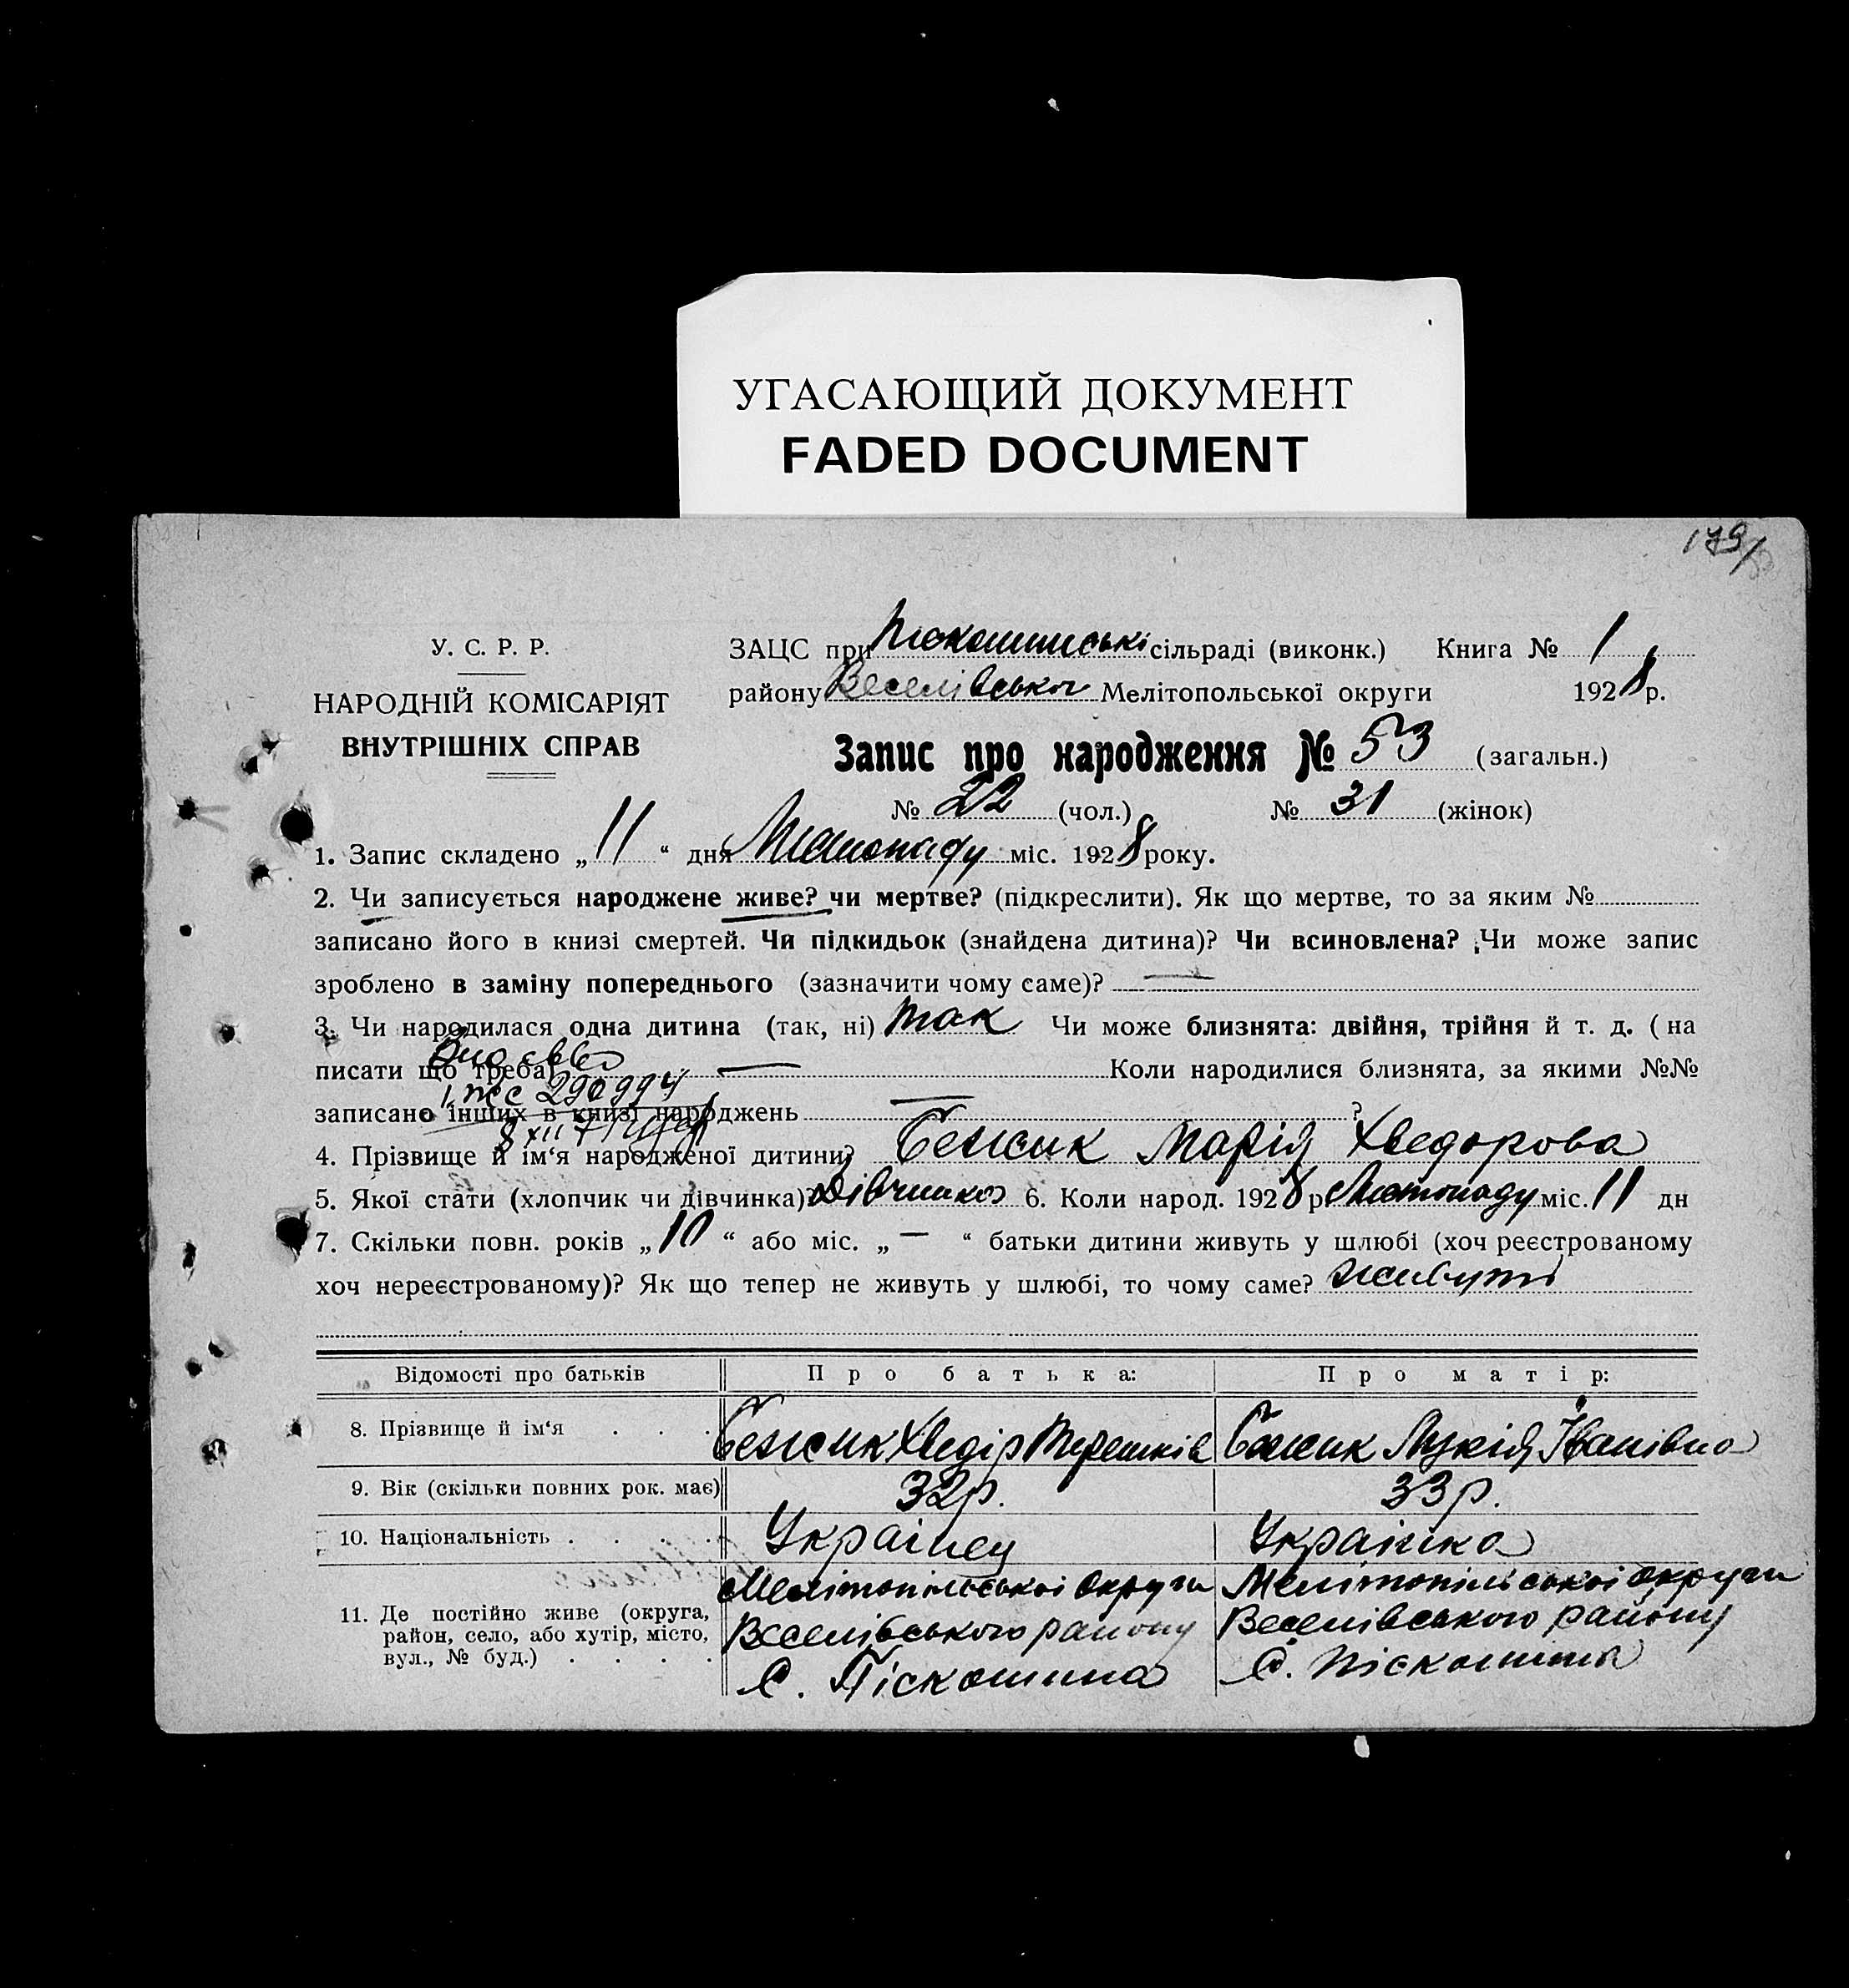 УГАСАЮЩИЙ ДОКУМЕНТ
FADED DOCUMENT
179/
У. С. Р. Р.
НАРОДНІЙ КОМІСАРІЯТ
ВНУТРІШНІХ СПРАВ
ЗАЦС при Піскошинські сільраді (виконк.) Книга № 1
району Веселівського Мелітопольської округи 1928 р.
Запис про народження № 53 (загальн.)
№ 22 (чол.) № 31 (жінок)
1. Запис складено „ 11 “ дня Листопаду міс. 1928 року.
2. Чи записується народжене живе? чи мертве? (підкреслити). Як що мертве, то за яким №
записано його в книзі смертей. Чи підкидьок (знайдена дитина)? Чи всиновлена? Чи може запис
зроблено в заміну попереднього (зазначити чому саме)? —
3. Чи народилася одна дитина (так, ні) так Чи може близнята: двійня, трійня й т. д. ( на
писати що треба) — Коли народилися близнята, за якими №№
записано інших в книзі народжень — ?
4. Прізвище й ім‘я народженої дитини? Бежик Марія Хведорова
5. Якої стати (хлопчик чи дівчинка)? Дівчинка 6. Коли народ. 1928 р. Листопаду міс. 11 дн
7. Скільки повн. років „ 10 “ або міс. „ — “ батьки дитини живуть у шлюбі (хоч реєстрованому
хоч нереєстрованому)? Як що тепер не живуть у шлюбі, то чому саме? живуть
Відомості про батьків П р о б а т ь к а: П р о м а т і р:
8. Прізвище й ім‘я . . . Бежик Хведір Терешків Бежик Лукія Іванівна
9. Вік (скільки повних рок. має) 32 р. 33 р.
10. Національність . . . . Українец Українка
11. Де постійно живе (округа, район, село, або хутір, місто, вул., № буд.) . . . .
Мелітопільської округи Мелітопільської округи
Веселівського району Веселівського району
С. Піскошина С. Піскошина